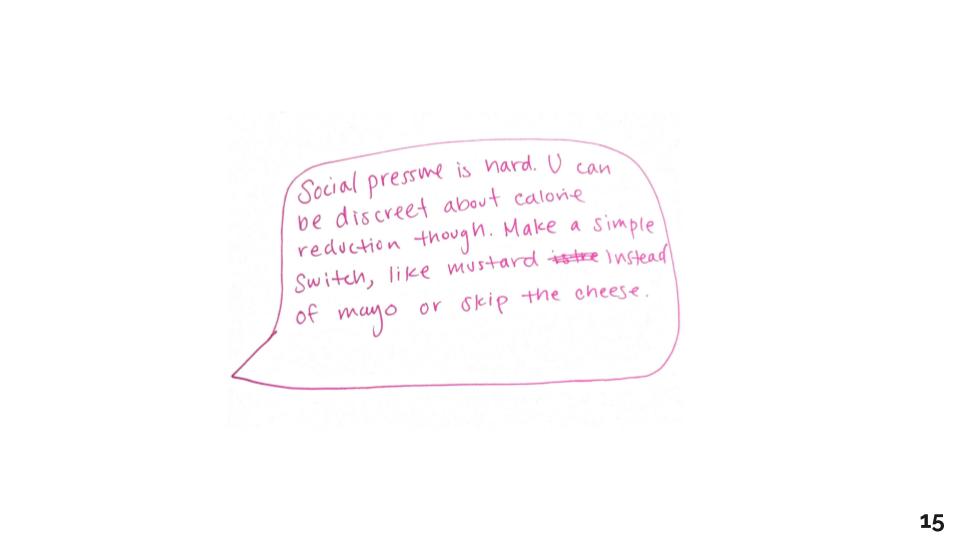 Social pressure is hard. U can
be discreet about calorie
reduction though. Make a simple
switch, like mustard instead
of mayo or skip the cheese.
15